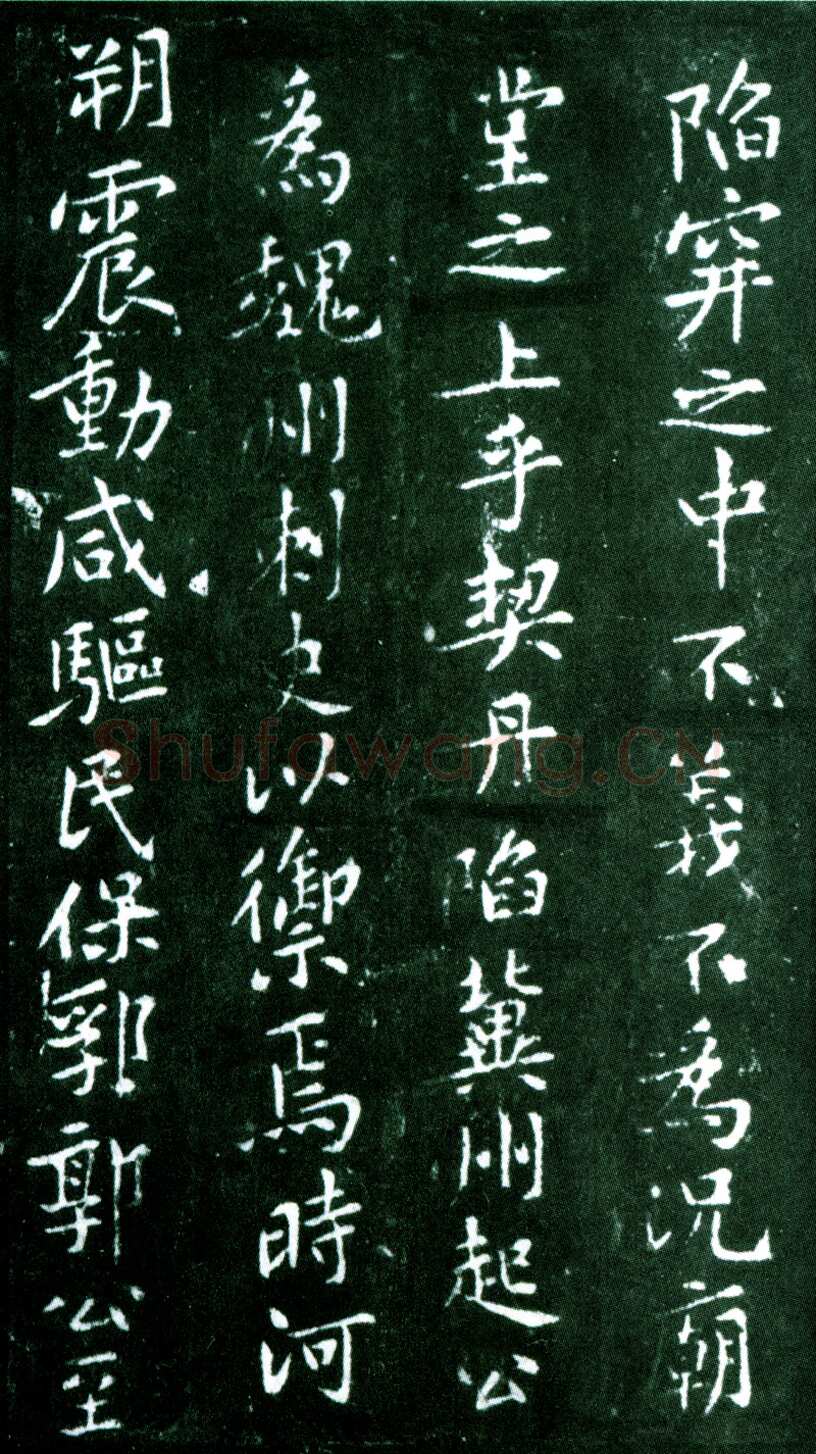 陷穽之中不義不為況廟
堂之上乎契丹陷冀州起公
為魏州刺史以禦焉時河
朔震動咸驅民保郛郭公至
Shufawang.CN